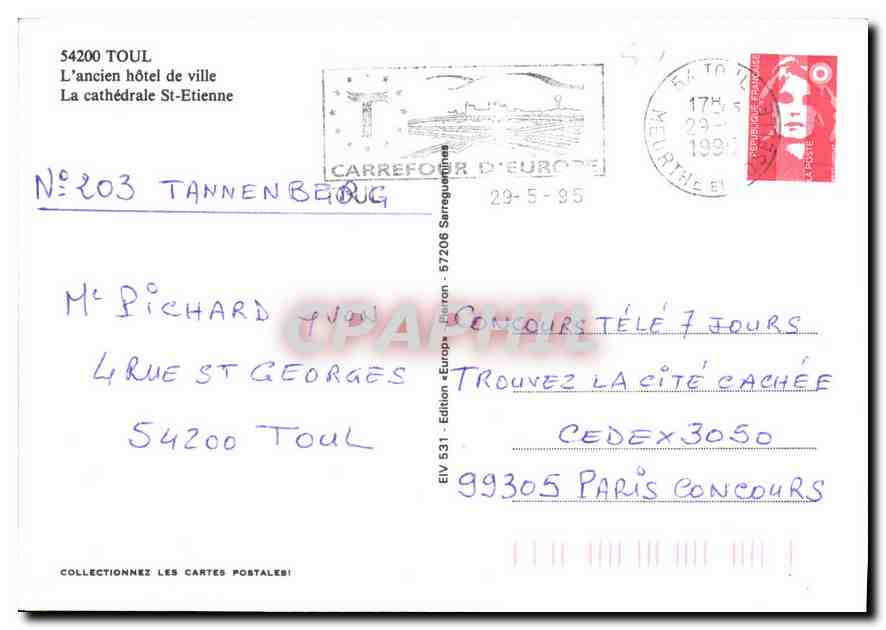 54200 TOUL
L'ancien hôtel de ville
La cathédrale St-Etienne
CARREFOUR D'EUROPE
TOUL
29-5-95
54 TOUL
17H
29-
199
MEURTHE ET
RÉPUBLIQUE FRANÇAISE
LA POSTE
N° 203 TANNENBERG
Mr PICHARD YVON
4 RUE ST GEORGES
54200 TOUL
EIV 531 - Edition «Europ» Pierron - 57206 Sarreguemines
CPAPHIL
CONCOURS TÉLÉ 7 JOURS
TROUVEZ LA CITÉ CACHÉE
CEDEX 3050
99305 PARIS CONCOURS
COLLECTIONNEZ LES CARTES POSTALES!